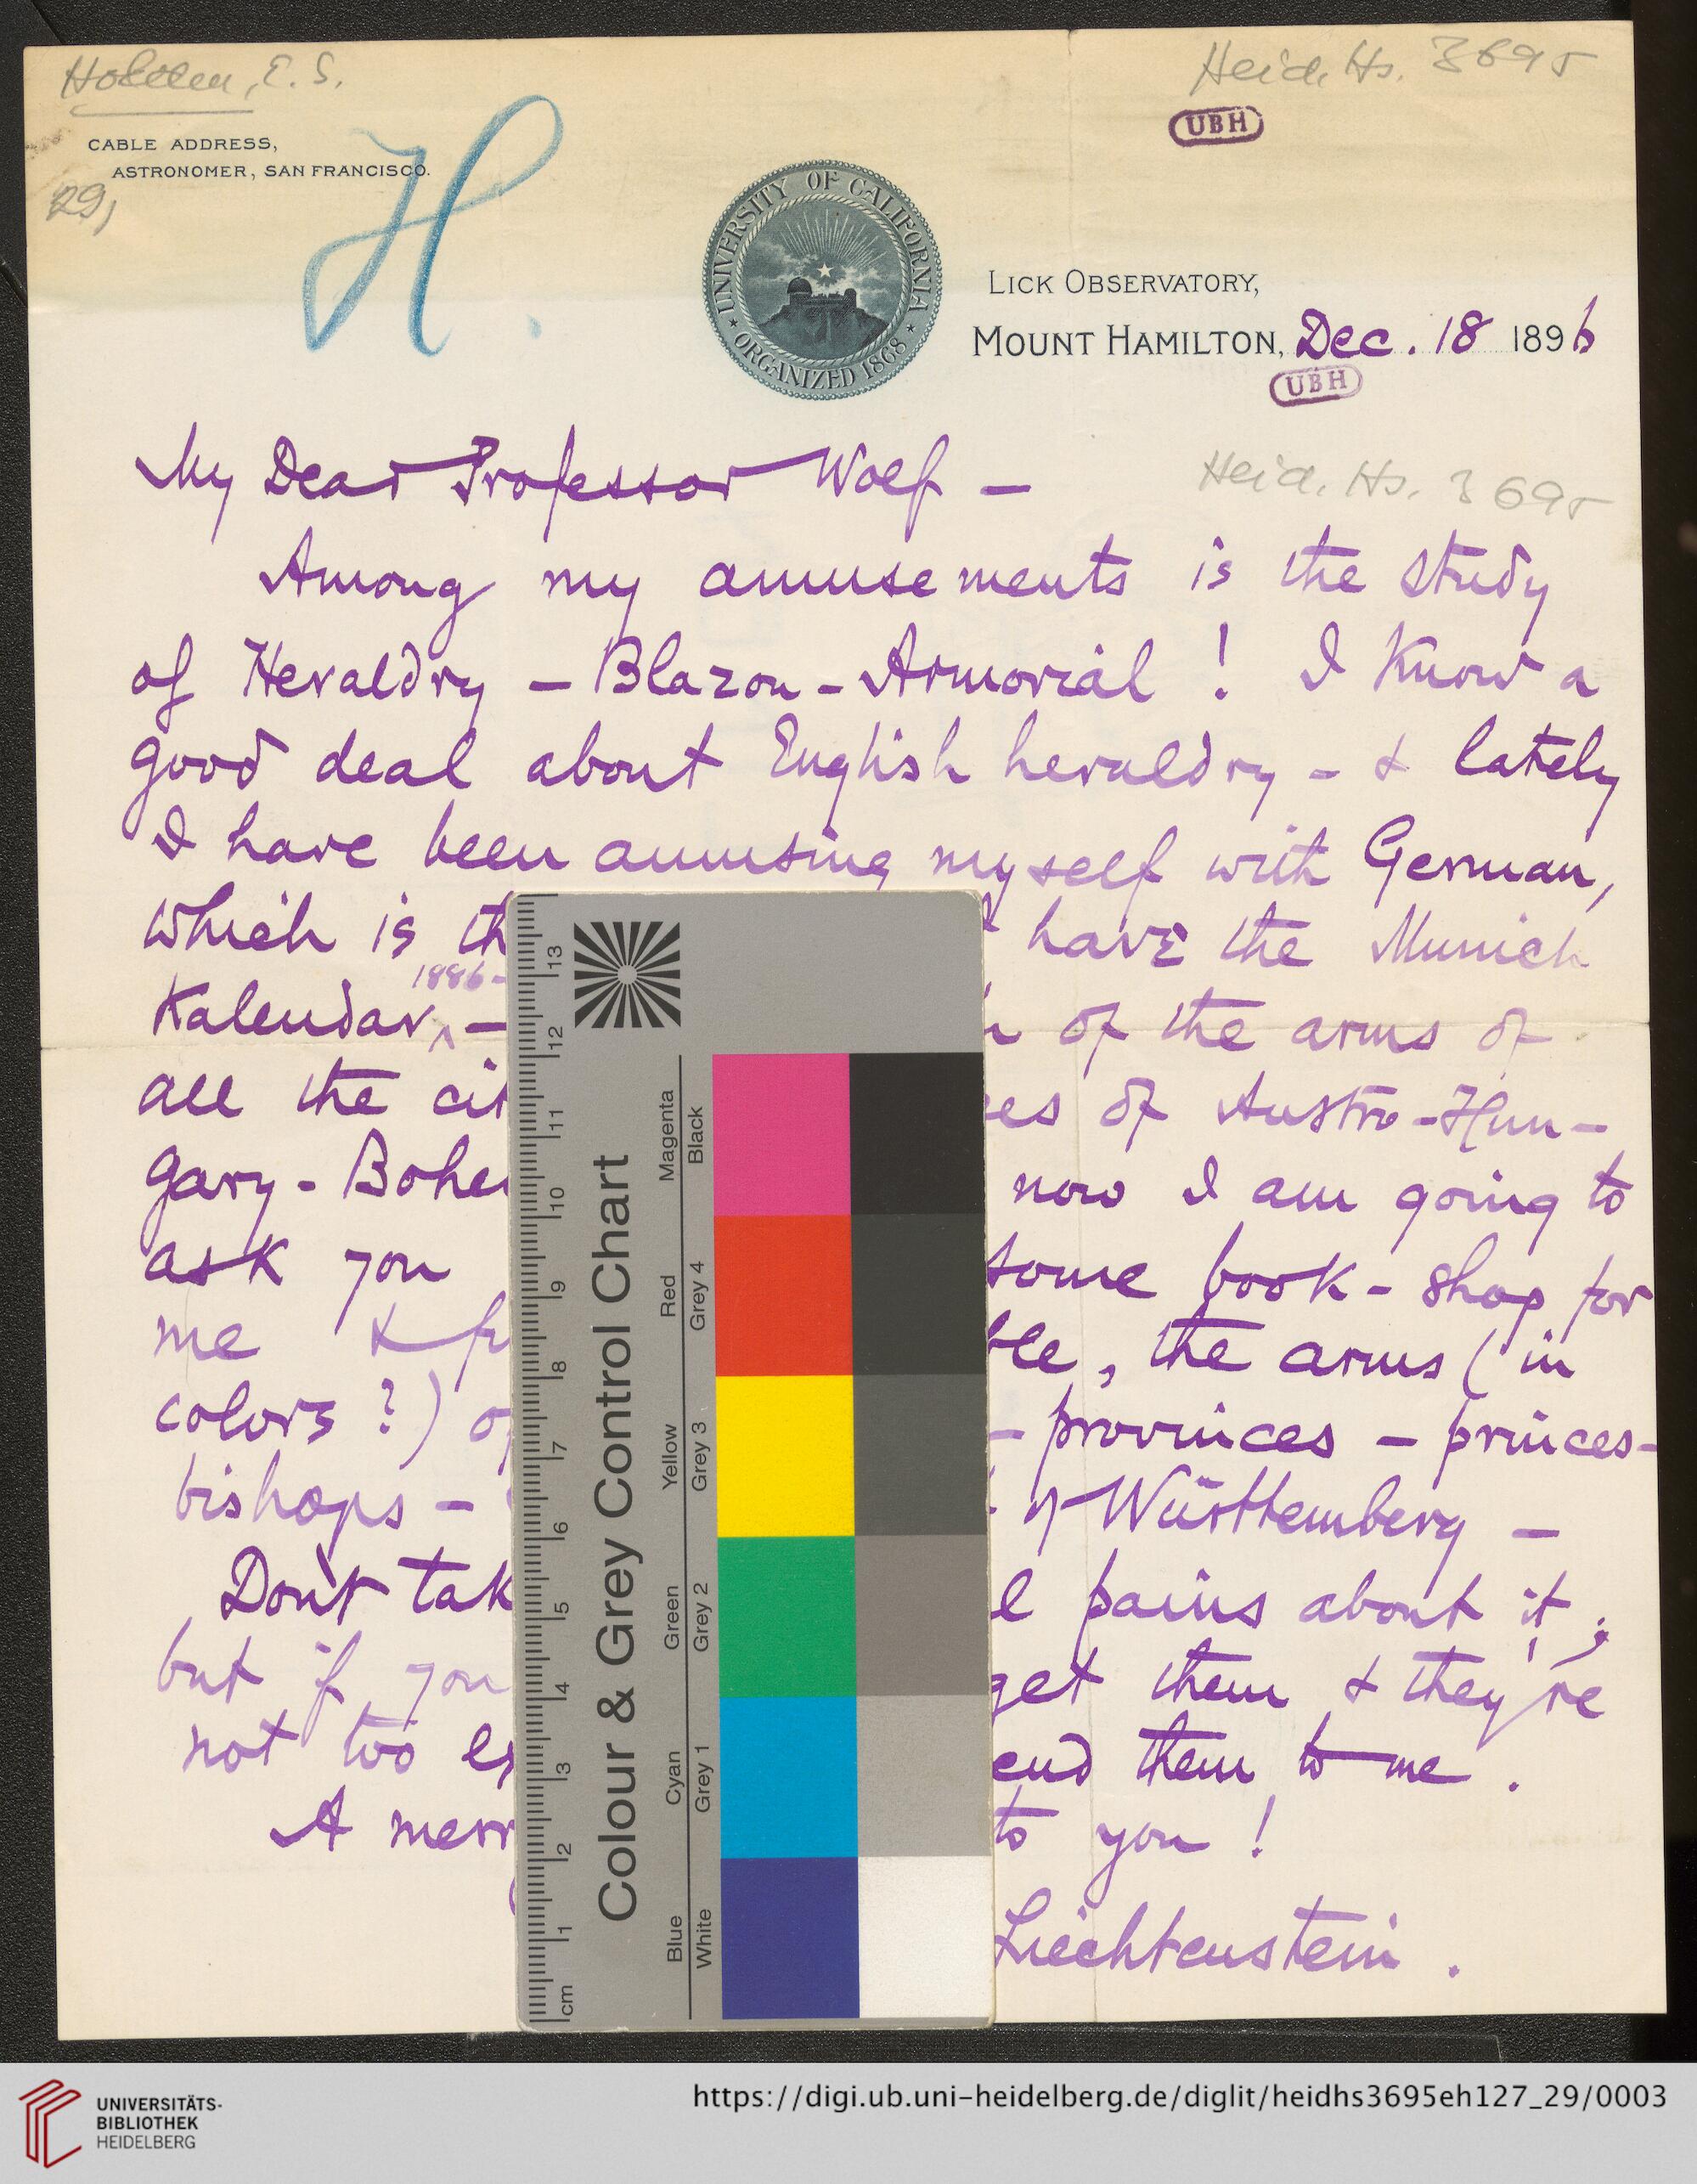 Holden, E. S.
Heid. Hs. 3695
UBH
CABLE ADDRESS,
ASTRONOMER, SAN FRANCISCO.
29,
H.
UNIVERSITY OF CALIFORNIA
ORGANIZED 1868
LICK OBSERVATORY,
MOUNT HAMILTON, Dec. 18 1896
UBH
My Dear Professor Wolf —
Heid. Hs. 3695
Among my amusements is the study
of Heraldry — Blazon - Armorial ! I know a
good deal about English heraldry - & lately
I have been amusing myself with German,
which is th have the Munich
1886-
Kalendar, — of the arms of
all the cit es of Austro-Hun-
gary - Bohe now I am going to
ask you some book-shop for
me & ble, the arms (in
colors?) - provinces - princes-
bishops - of Württemberg —
Don't tak l pains about it,
but if you get them & they're
not too ex end them to me.
A merr to you!
Liechtenstein.
Colour & Grey Control Chart
Blue Cyan Green Yellow Red Magenta
White Grey 1 Grey 2 Grey 3 Grey 4 Black
cm 1 2 3 4 5 6 7 8 9 10 11 12 13
UNIVERSITÄTS-
BIBLIOTHEK
HEIDELBERG
https://digi.ub.uni-heidelberg.de/diglit/heidhs3695eh127_29/0003